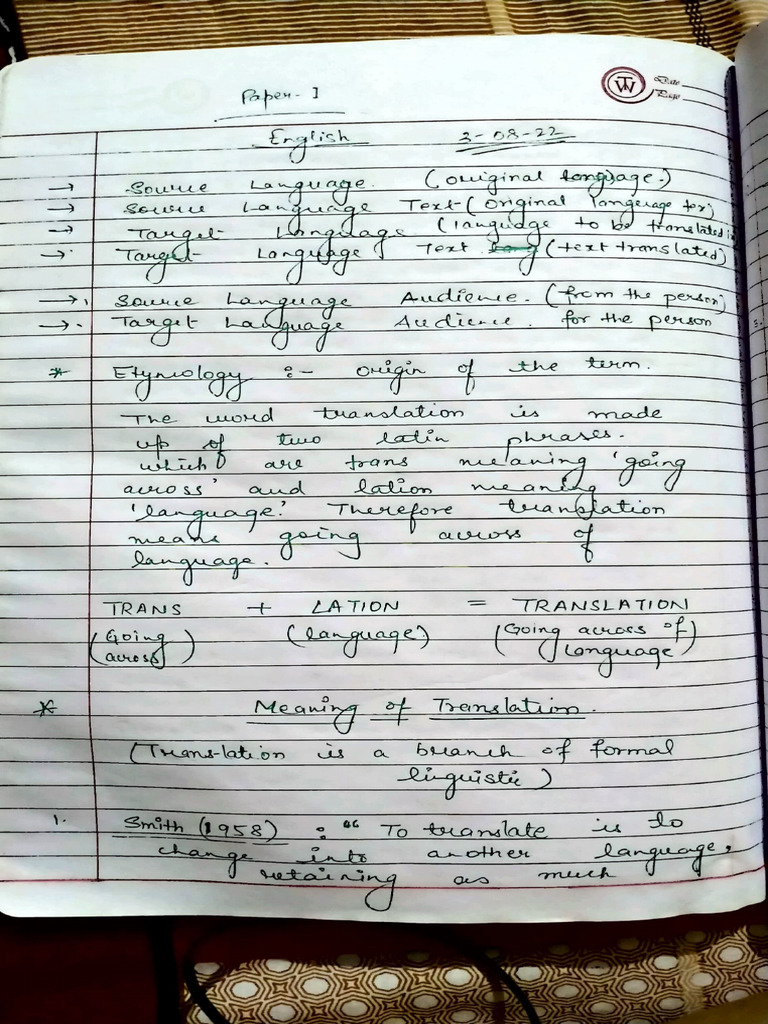 Date
Page
Paper - I
English 3-08-22
→ Source Language. (original language.)
→ Source Language Text (original language tex)
→ Target Language (language to be translated in
→ Target Language Text (text translated)
→ Source Language Audience. (from the person)
→ Target Language Audience. for the person
* Etymology :- origin of the term.
The word translation is made
up of two latin phrases.
which are trans meaning 'going
across' and lation meaning
'language.' Therefore translation
means going across of
language.
TRANS + LATION = TRANSLATION
(Going across) (language) (Going across of language)
* Meaning of Translation.
(Trans-lation is a branch of formal
linguistic)
1. Smith (1958) : "To translate is to
change into another language,
retaining as much